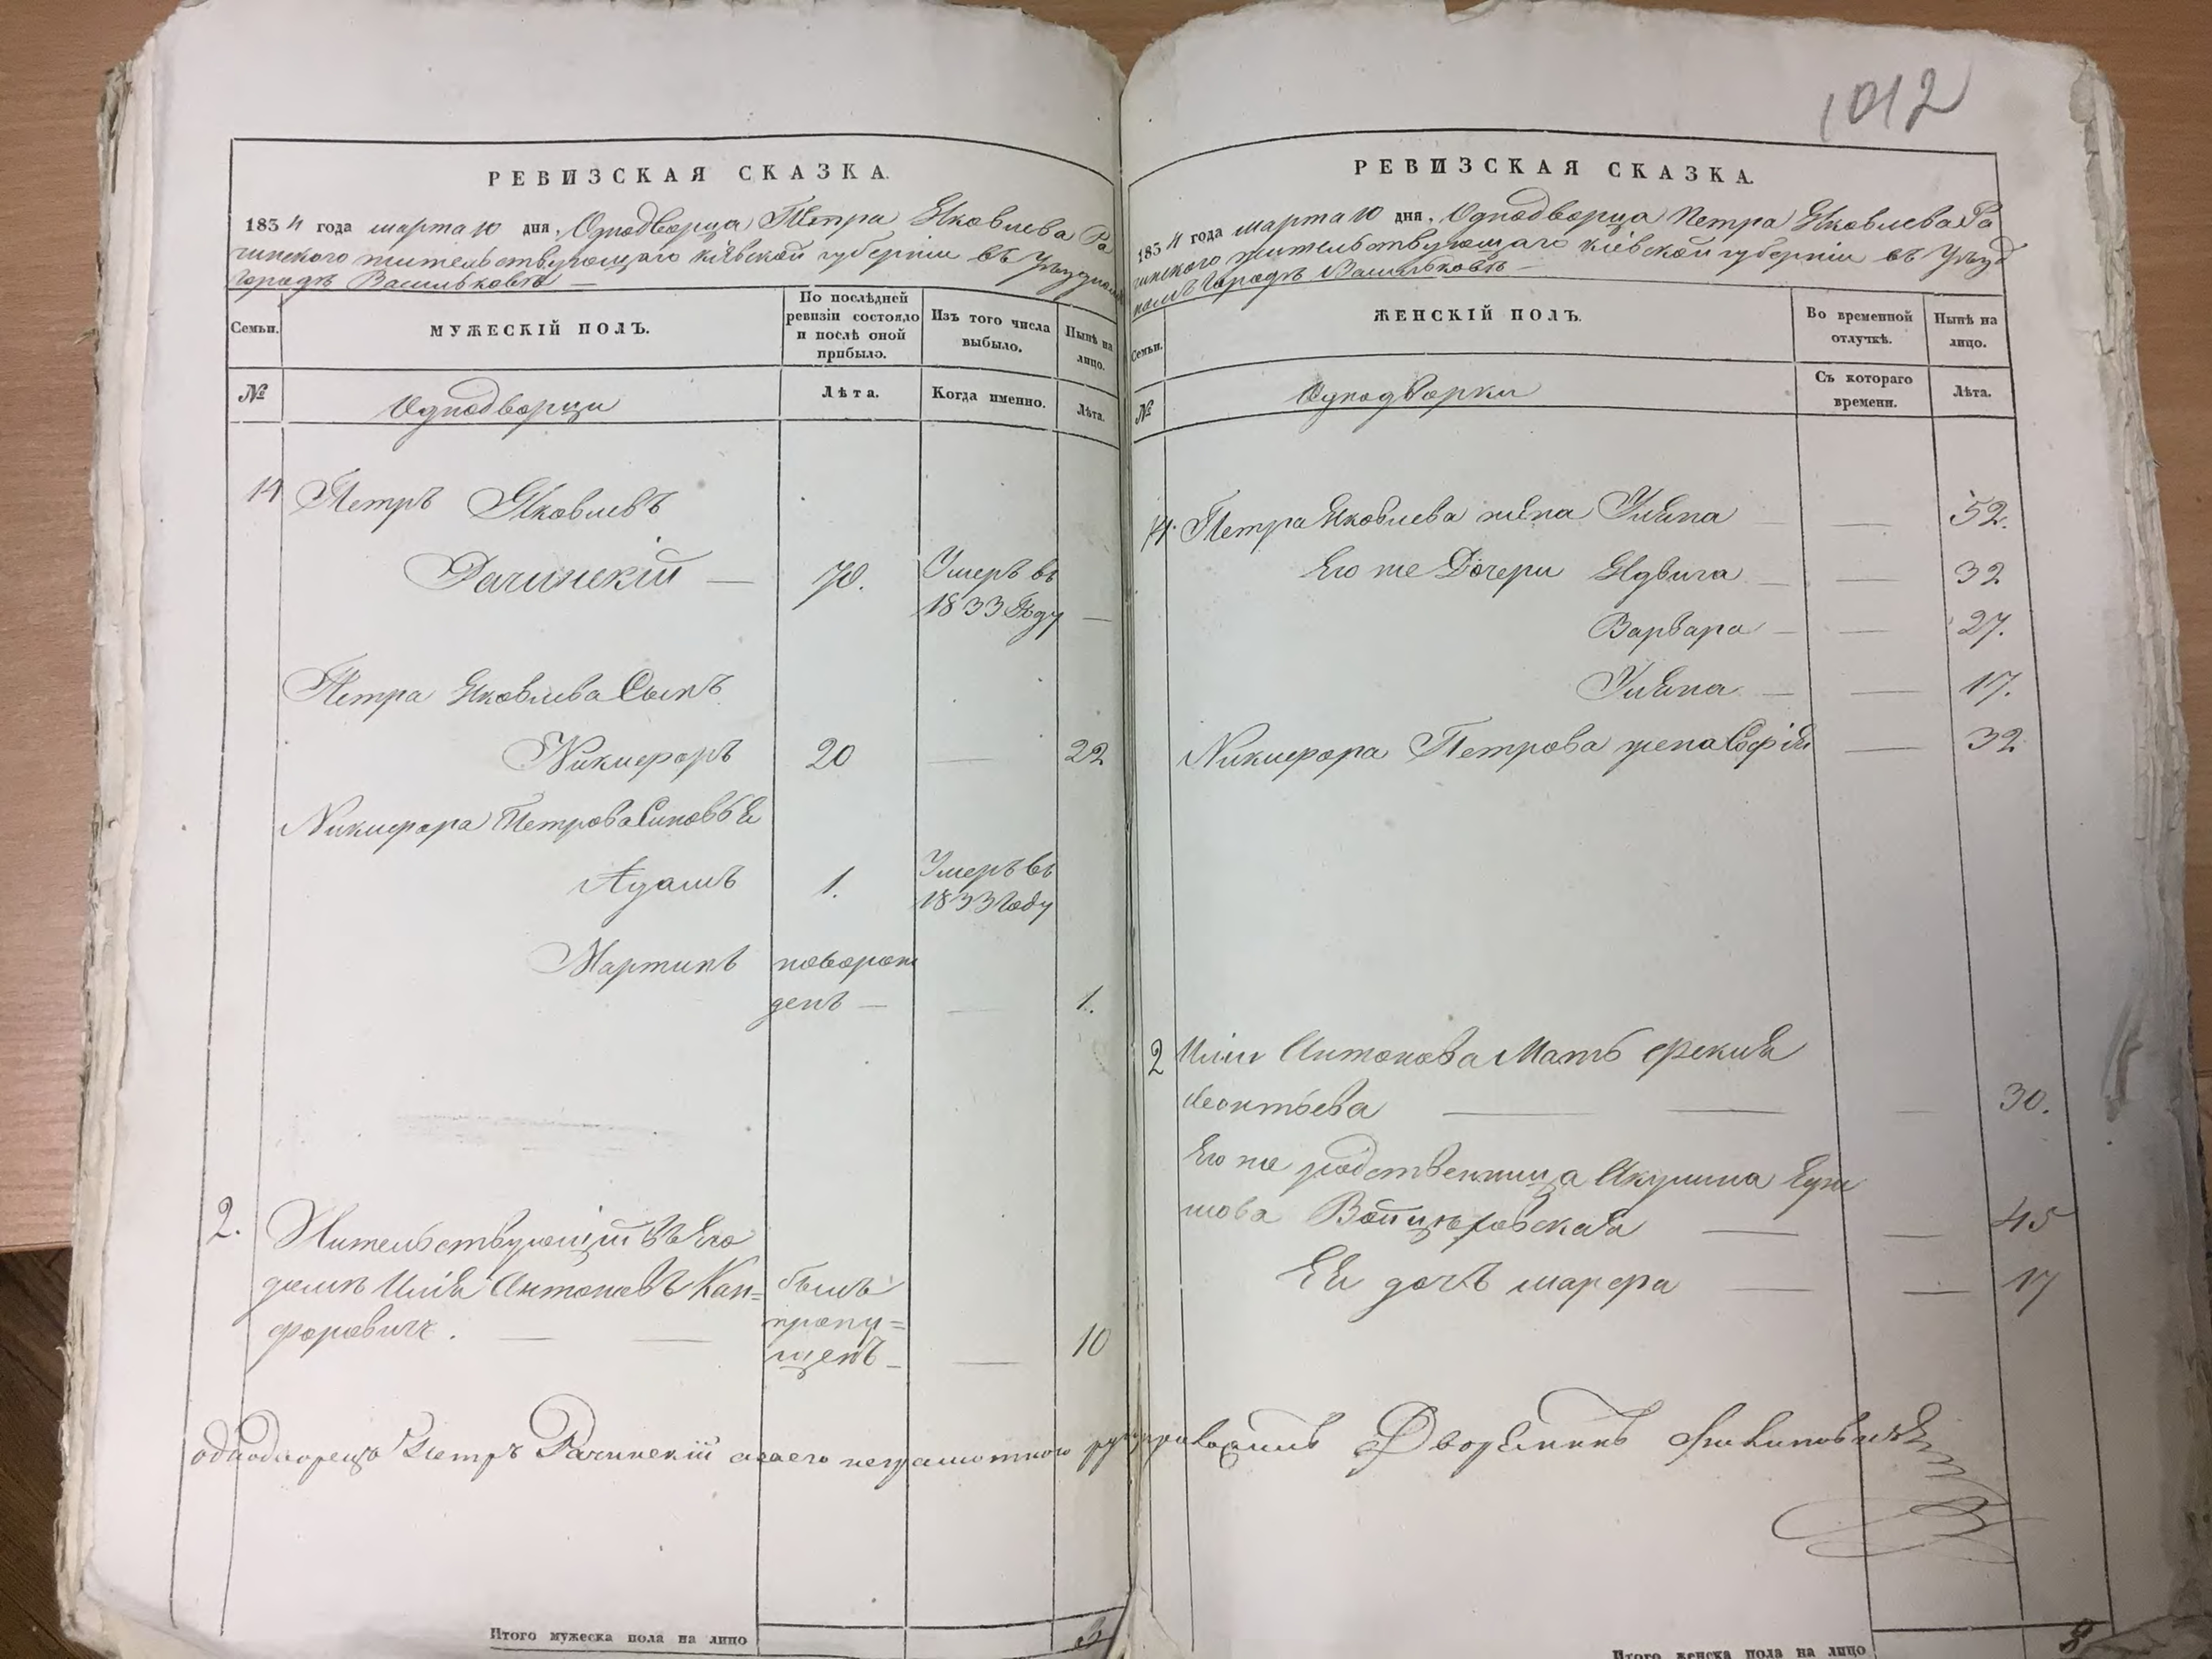 1012
РЕВИЗСКАЯ СКАЗКА.
1834 года марта 10 дня, Однодворца Петра Яковлева Ра
чинского жительствующаго Кіевской губерніи въ уѣздномъ
городѣ Васильковѣ —
Семьи.
МУЖЕСКІЙ ПОЛЪ.
По послѣдней
ревизіи состояло
и послѣ оной
прибыло.
Изъ того числа
выбыло.
Нынѣ на
лицо.
№
Однодворци
Лѣта.
Когда именно.
Лѣта.
14 Петръ Яковлевъ
Рачинскій — 70. Умеръ въ
1833 Году —
Петра Яковлева Сынъ
Никифоръ 20 — 22
Никифора Петрова Синовья
Адамъ 1. Умеръ въ
1833 Году
Мартинъ новорож
денъ — — 1.
2. Жительствующій въ Его
домѣ Илія Антоновъ Кан= былъ
форовичъ. — — пропу= 10
щенъ —
однодворецъ Петръ Рачинскій а за его неграмотного
Итого мужеска пола на лицо 3
РЕВИЗСКАЯ СКАЗКА.
1834 года марта 10 дня, Однодворца Петра Яковлева Ра
чинского жительствующаго Кіевской губерніи въ уѣзд
номъ городѣ Васильковѣ —
Семьи.
ЖЕНСКІЙ ПОЛЪ.
Во временной
отлучкѣ.
Нынѣ на
лицо.
№
Однодворки
Съ котораго
времени.
Лѣта.
14. Петра Яковлева жена Уляна — 52.
Его же Дочери Ядвига — — 32
Варвара — — 27.
Уляна — — 17.
Никифора Петрова жена Софія — 32
2 Иліи Антонова Мать Фекия
Леонтьева — — — 30.
Его же родственница Акулина Ефи
мова — — 45
Ея дочъ марфа — — 17
Дворянинъ
Итого женска пола на лицо 8